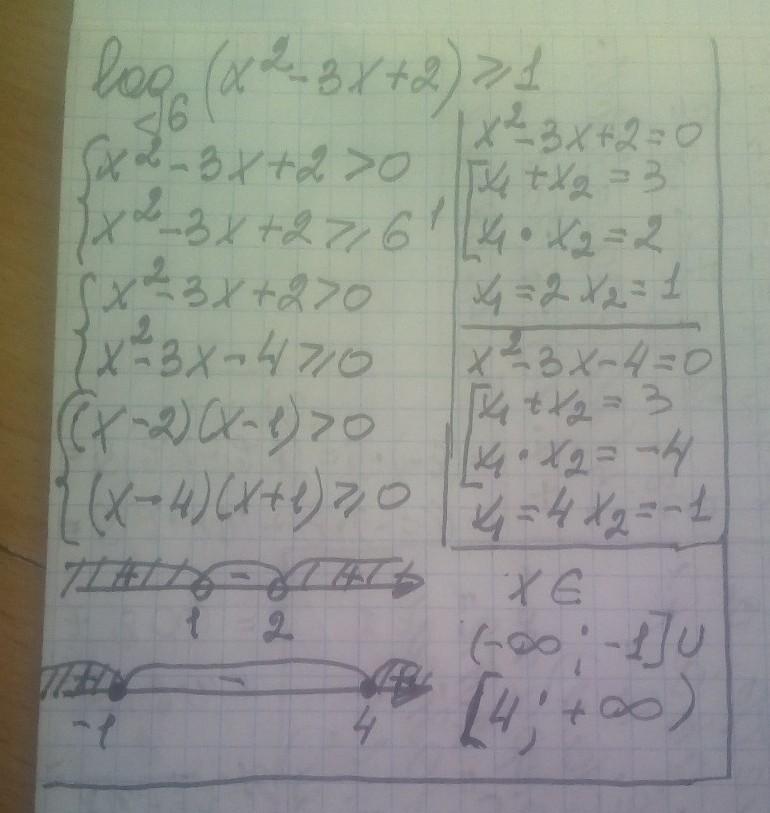 log₆ (x² - 3x + 2) ≥ 1
{ x² - 3x + 2 > 0
{ x² - 3x + 2 ≥ 6¹
{ x² - 3x + 2 > 0
{ x² - 3x - 4 ≥ 0
{ (x - 2)(x - 1) > 0
{ (x - 4)(x + 1) ≥ 0
+ - +
1 2
+ - +
-1 4
x² - 3x + 2 = 0
[ x₁ + x₂ = 3
[ x₁ · x₂ = 2
x₁ = 2 x₂ = 1
x² - 3x - 4 = 0
[ x₁ + x₂ = 3
[ x₁ · x₂ = -4
x₁ = 4 x₂ = -1
x ∈
(-∞ ; -1] ∪
[4 ; +∞)